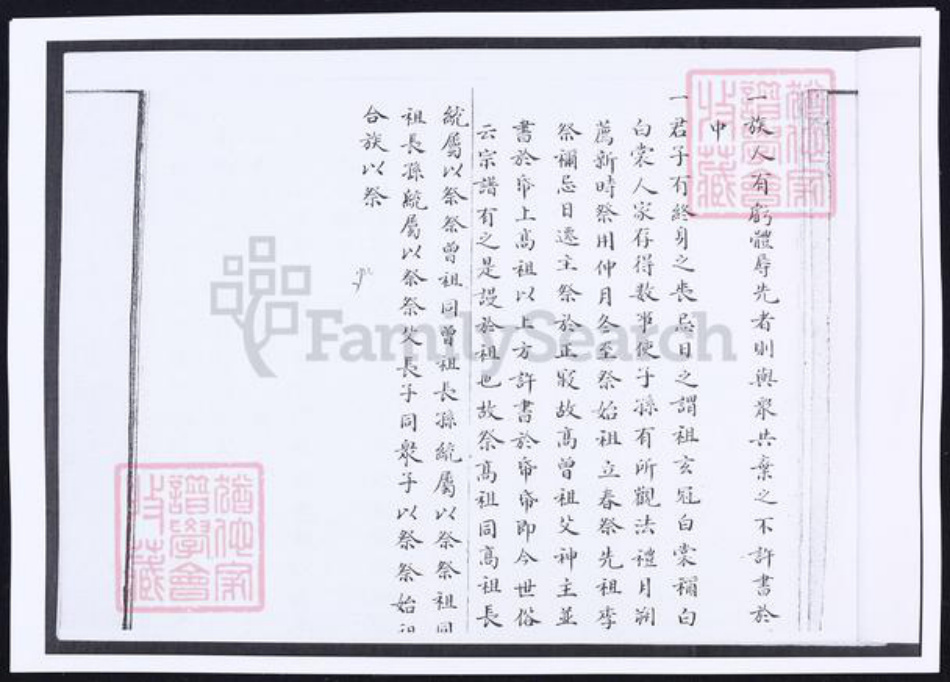 一族人有虧體辱先者則與眾共棄之不許書於
中
一君子有終身之喪忌日之謂祖玄冠白裳禰白
白裳人家存得数事使子孫有所觀法禮月朔
薦新時祭用仲月冬至祭始祖立春祭先祖季
祭禰忌日遷主祭於正寢故高曾祖父神主並
書於帛上高祖以上方許書於帛帛即今世俗
云宗譜有之是謖於祖也故祭高祖同高祖長
統屬以祭祭曾祖同曾祖長孫統屬以祭祭祖同
祖長孫統屬以祭祭父長子同眾子以祭祭始祖
合族以祭
FamilySearch
譜學會
收藏
譜學會
收藏